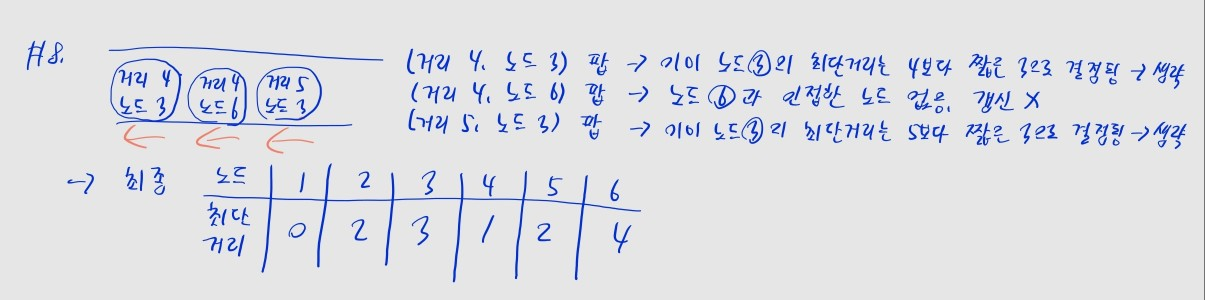 #8.
거리 4 노드 3
거리 4 노드 6
거리 5 노드 3
(거리 4, 노드 3) 팝 → 이미 노드③의 최단거리는 4보다 짧은 3으로 결정됨 → 생략
(거리 4, 노드 6) 팝 → 노드 ⑥과 인접한 노드 없음, 갱신 X
(거리 5, 노드 3) 팝 → 이미 노드③의 최단거리는 5보다 짧은 3으로 결정됨 → 생략
→ 최종 노드 1 2 3 4 5 6
최단 거리 0 2 3 1 2 4